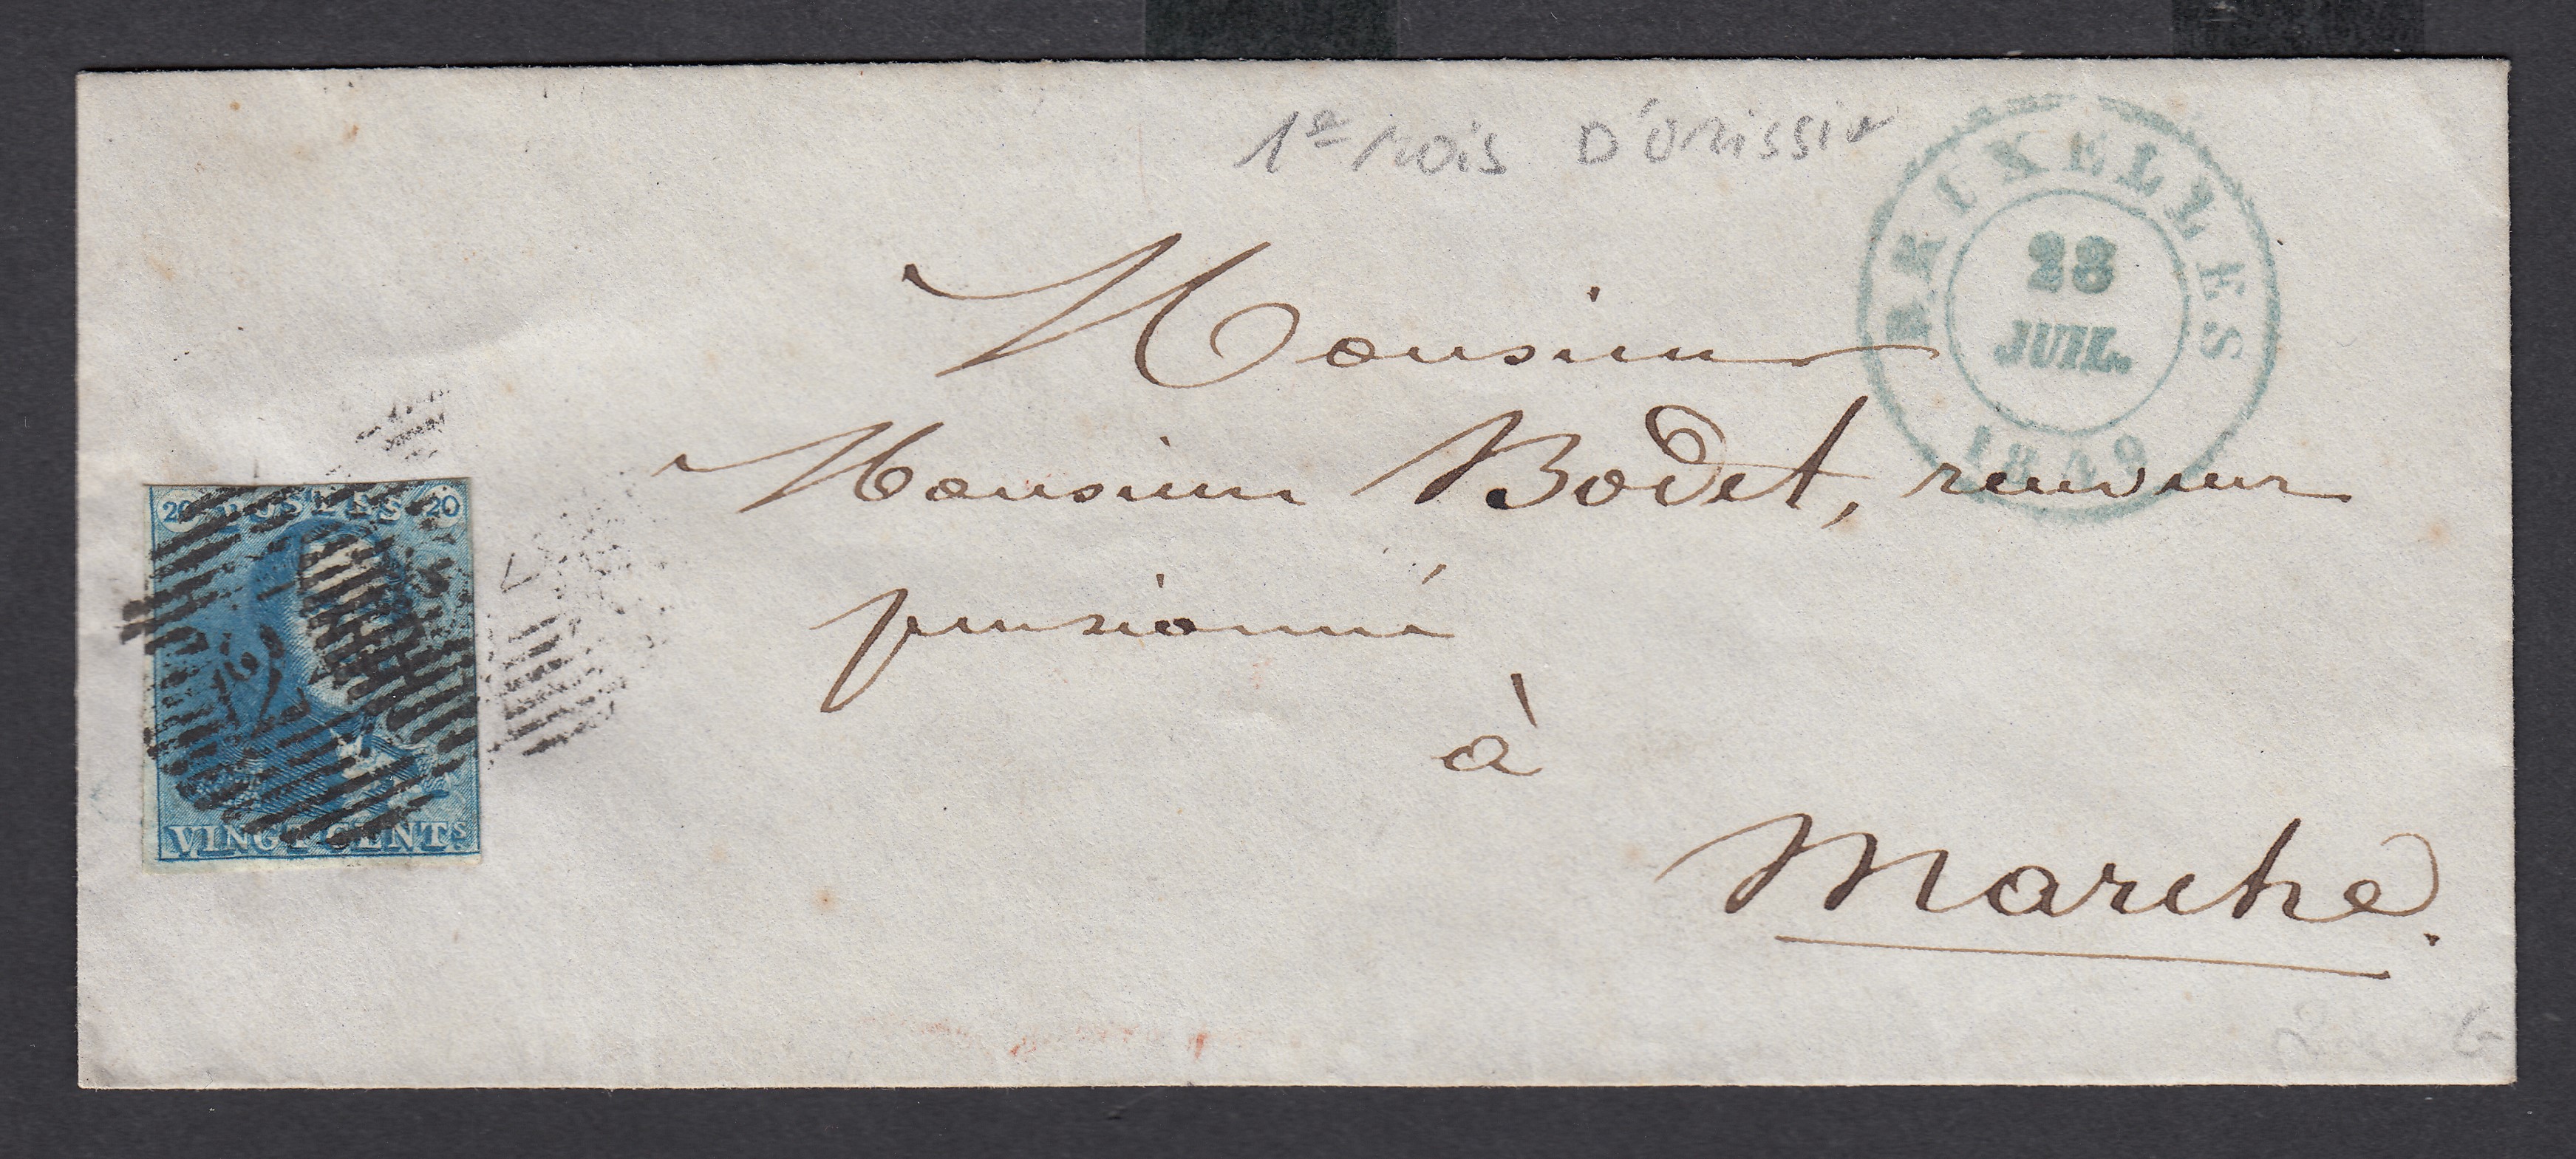 1er Mois D'émission
BRUXELLES
28
JUIL.
1849
Monsieur
Monsieur Bodet, receveur
pensionné
à
Marche.
20 POSTES 20
VINGT CENTS